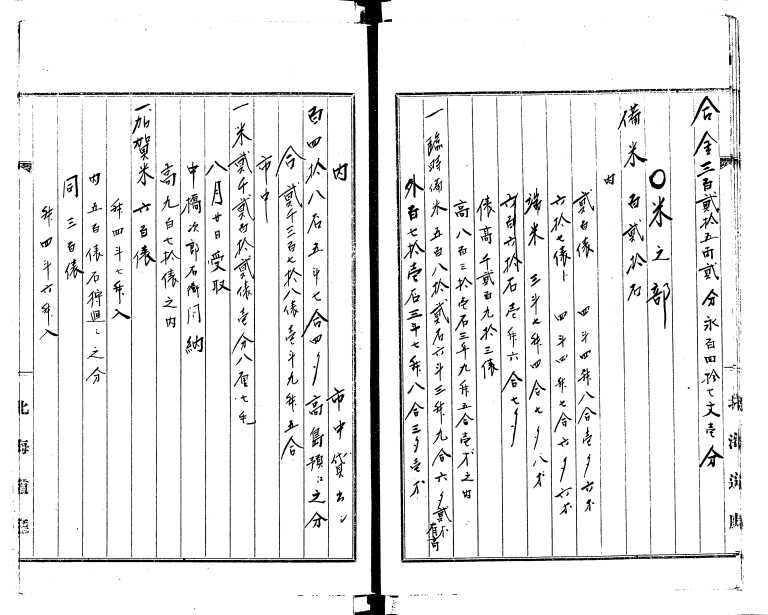 合金三百貳拾五両貳分永百四拾七文壱分
〇米之部
備米 百貳拾石
内
貳百俵 四斗四升八合壱夕六才
六拾七俵ト 四斗四升七合六夕六才
端米 三斗七升四合七夕八才
六百六拾石壱升六合七夕
俵高千貳百九拾三俵
高八百三拾壱石三斗九升五合壱才之内
一臨時備米五百八拾貳石六斗三升九合六夕貳才有高
外百七拾壱石三斗七升八合三夕壱才
内 市中貸出シ
百四拾八石五斗七合四夕 高島預ニ之分
合貳千三百七拾八俵壱斗九升五合
市中
一米貳千貳百拾貳俵壱分八厘七毛
八月廿日受取
中橋次郎右衛門納
高九百七拾俵之内
一加賀米 六百俵
升四斗七升入
内五百俵石狩之分
同三百俵
升四斗六升入
北海道庁